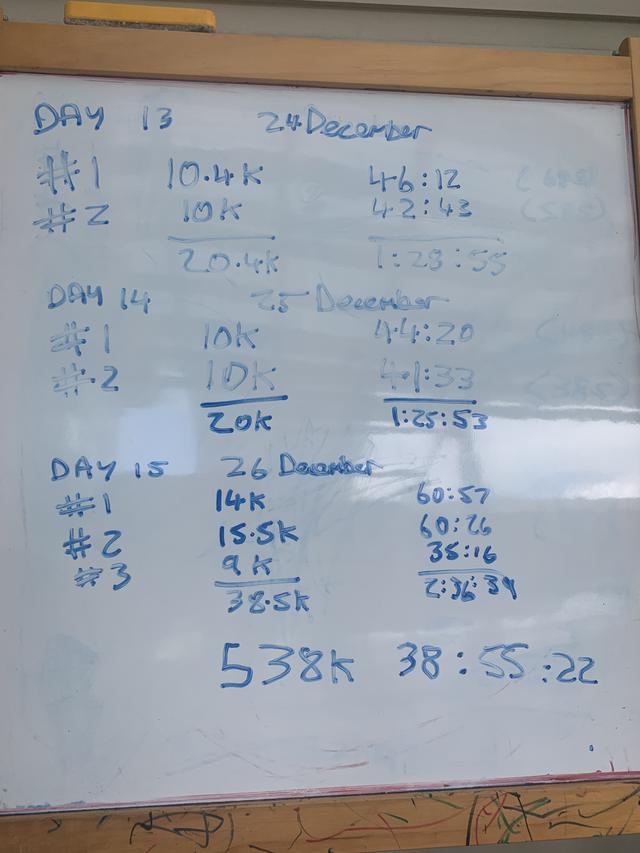 DAY 13 24 December
#1 10.4K 46:12
#2 10K 42:43
20.4K 1:28:55
DAY 14 25 December
#1 10K 44:20
#2 10K 41:33
20K 1:25:53
DAY 15 26 December
#1 14K 60:57
#2 15.5K 60:26
#3 9K 35:16
38.5K 2:36:39
538K 38:55:22